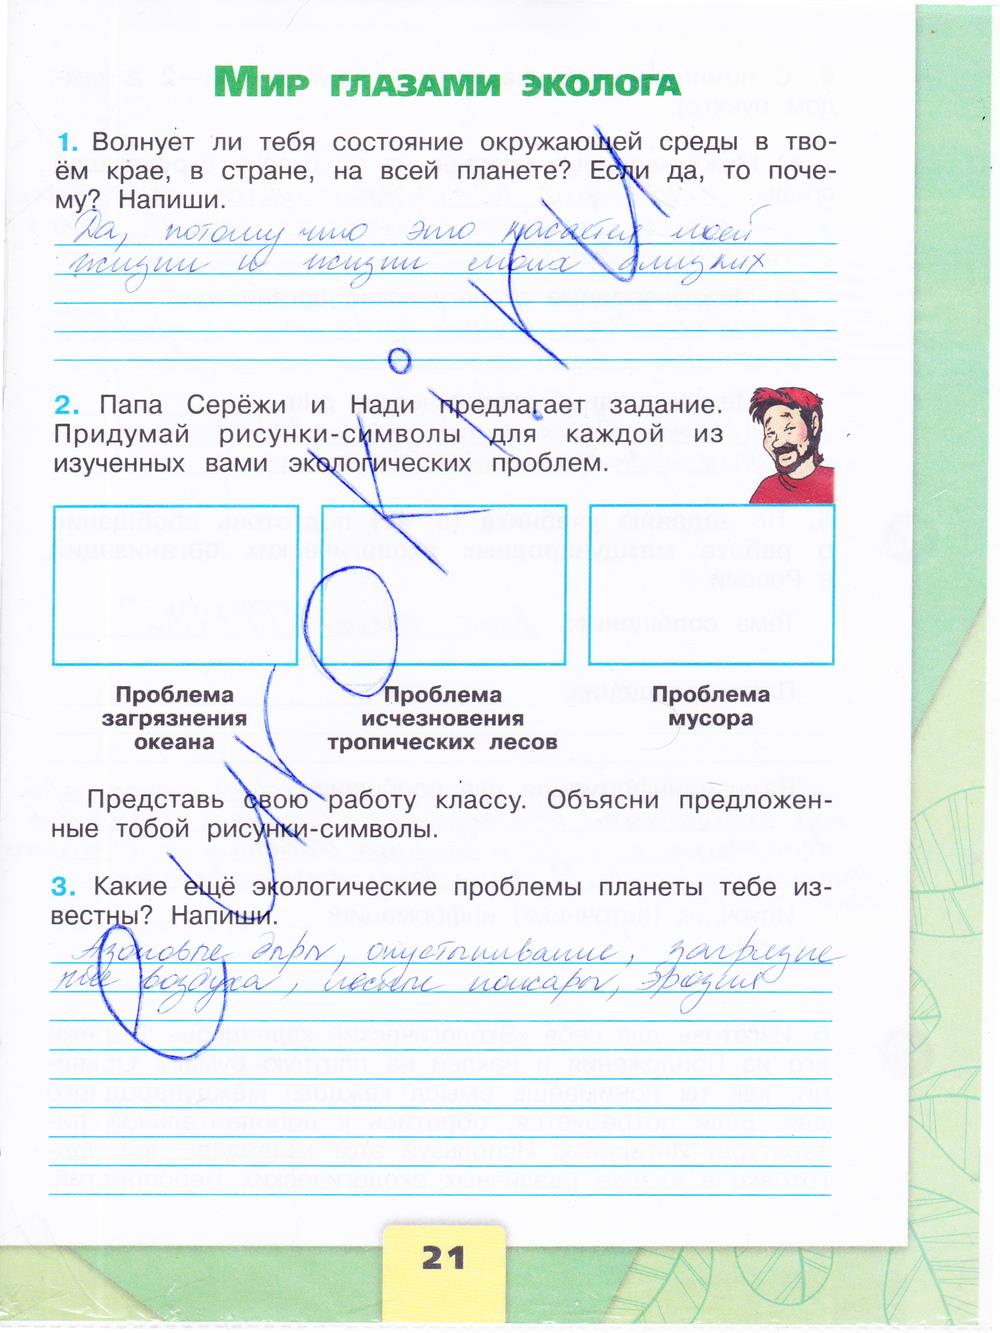 Мир глазами эколога
1. Волнует ли тебя состояние окружающей среды в тво-
ём крае, в стране, на всей планете? Если да, то поче-
му? Напиши.
Да, потому что это касается моей
жизни и жизни моих близких
2. Папа Серёжи и Нади предлагает задание.
Придумай рисунки-символы для каждой из
изученных вами экологических проблем.
Проблема
загрязнения
океана
Проблема
исчезновения
тропических лесов
Проблема
мусора
Представь свою работу классу. Объясни предложен-
ные тобой рисунки-символы.
3. Какие ещё экологические проблемы планеты тебе из-
вестны? Напиши.
Азоновые дыры, опустынивание, загрязне
ние воздуха, лесные пожары, эрозия
21